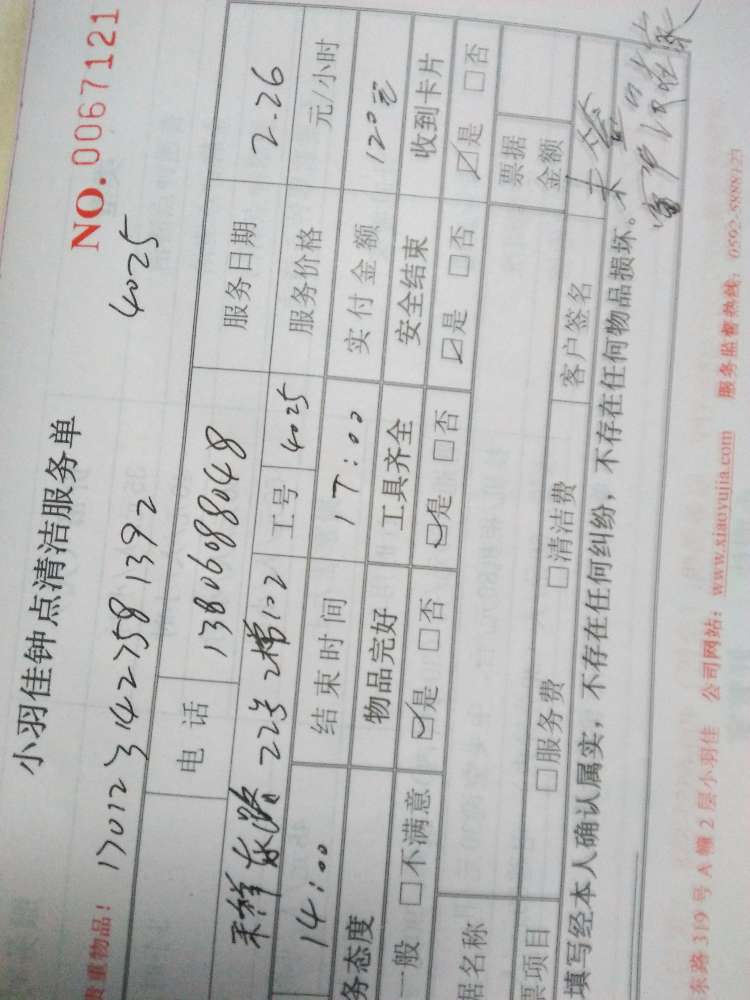 小羽佳钟点清洁服务单 NO. 0067121
贵重物品! 1701231427581392 4025
电话 13806088048 服务日期 2.26
禾祥东路22号2梯102 工号 4025 服务价格 元/小时
14:00 结束时间 17:00 实付金额 120元
务态度 物品完好 工具齐全 安全结束 收到卡片
一般 □不满意 ☑是 □否 ☑是 □否 ☑是 □否 ☑是 □否
据名称 票据
票项目 □服务费 □清洁费 金额
客户签名
填写经本人确认属实,不存在任何纠纷,不存在任何物品损坏。
东路319号A幢2层小羽佳 公司网站:www.xiaoyujia.com 服务监督热线:0592-5888123